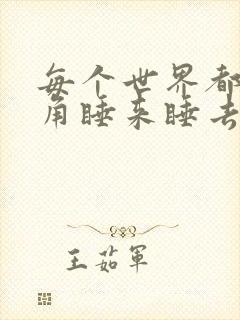 每个世界都
角睡来睡去
王茹军